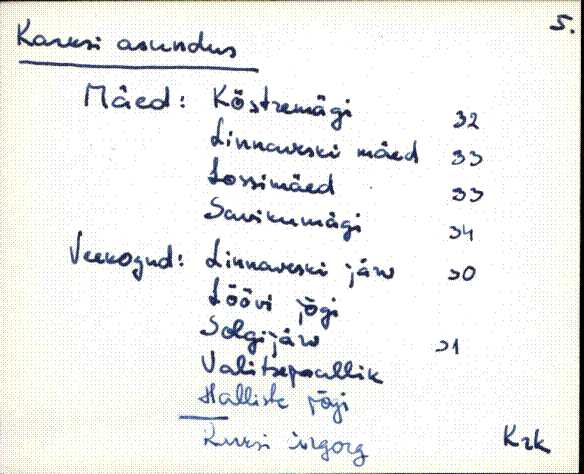 5.
Karksi asundus
Mäed: Köstremägi 32
Linnaveski mäed 33
Lossimäed 33
Savikumägi 34
Veekogud: Linnaveski järv 30
Löövi jõgi
Solgijärv 31
Valitsepallik
Halliste jõgi
Kursi ürgorg
Krk